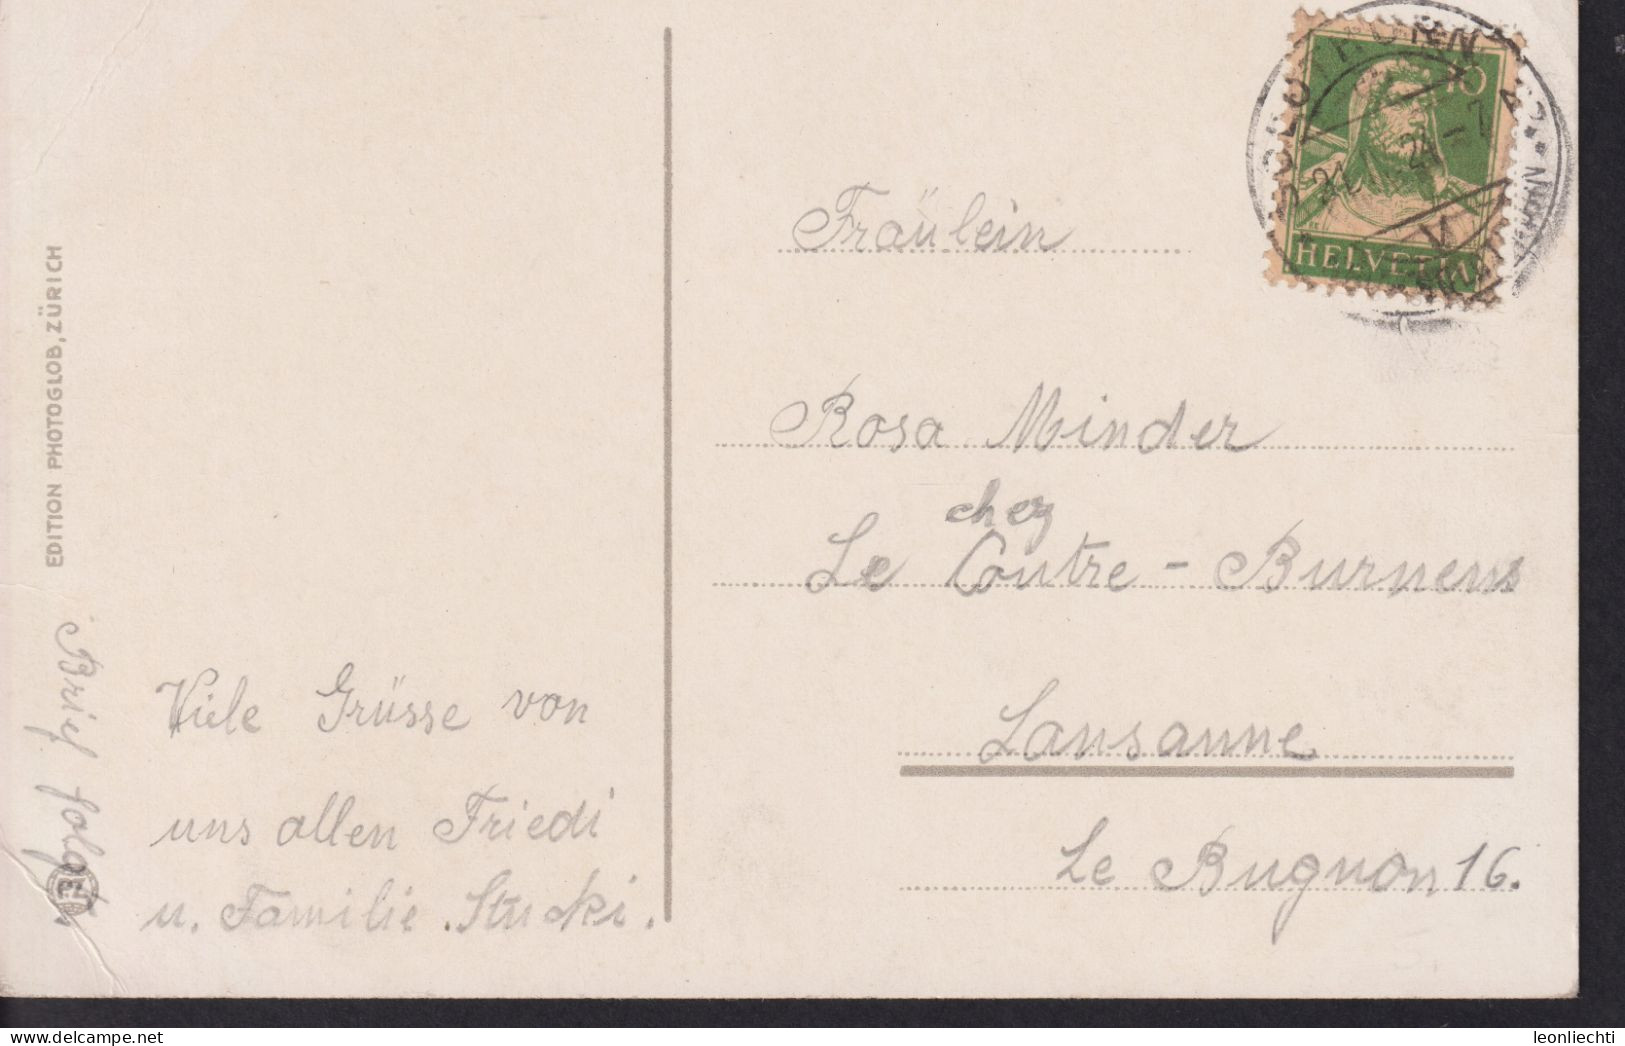 EDITION PHOTOGLOB, ZÜRICH
Brief folgt.
Viele Grüsse von
uns allen Friedi
u. Familie Stucki.
10
HELVETIA
Fräulein
Rosa Minder
chez
Le Coutre - Burnens
Lausanne
Le Bugnon 16.
leonliechti